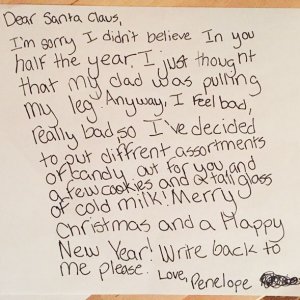 Dear Santa Claus,
I'm sorry I didn't believe In you
half the year. I just thought
that my dad was pulling
my leg. Anyway, I feel bad,
really bad so I've decided
to put diffrent assortments
of candy out for you, and
a few cookies and a tall glass
of cold milk! Merry
Christmas and a Happy
New Year! Write back to
me please. Love, Penelope